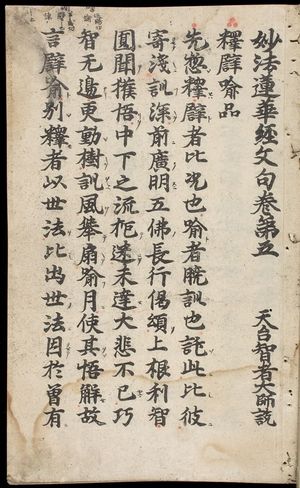 妙法蓮華經文句卷第五
天台智者大師說
釋譬喻品
先惣釋譬者比况也喻者曉訓也託此比彼
寄淺訓深前廣明五佛長行偈頌上根利智
圓聞獲悟中下之流抱迷未達大悲不已巧
智无邊更動樹訓風舉扇喻月使其悟解故
言譬喻別釋者以世法比出世法因於曾有